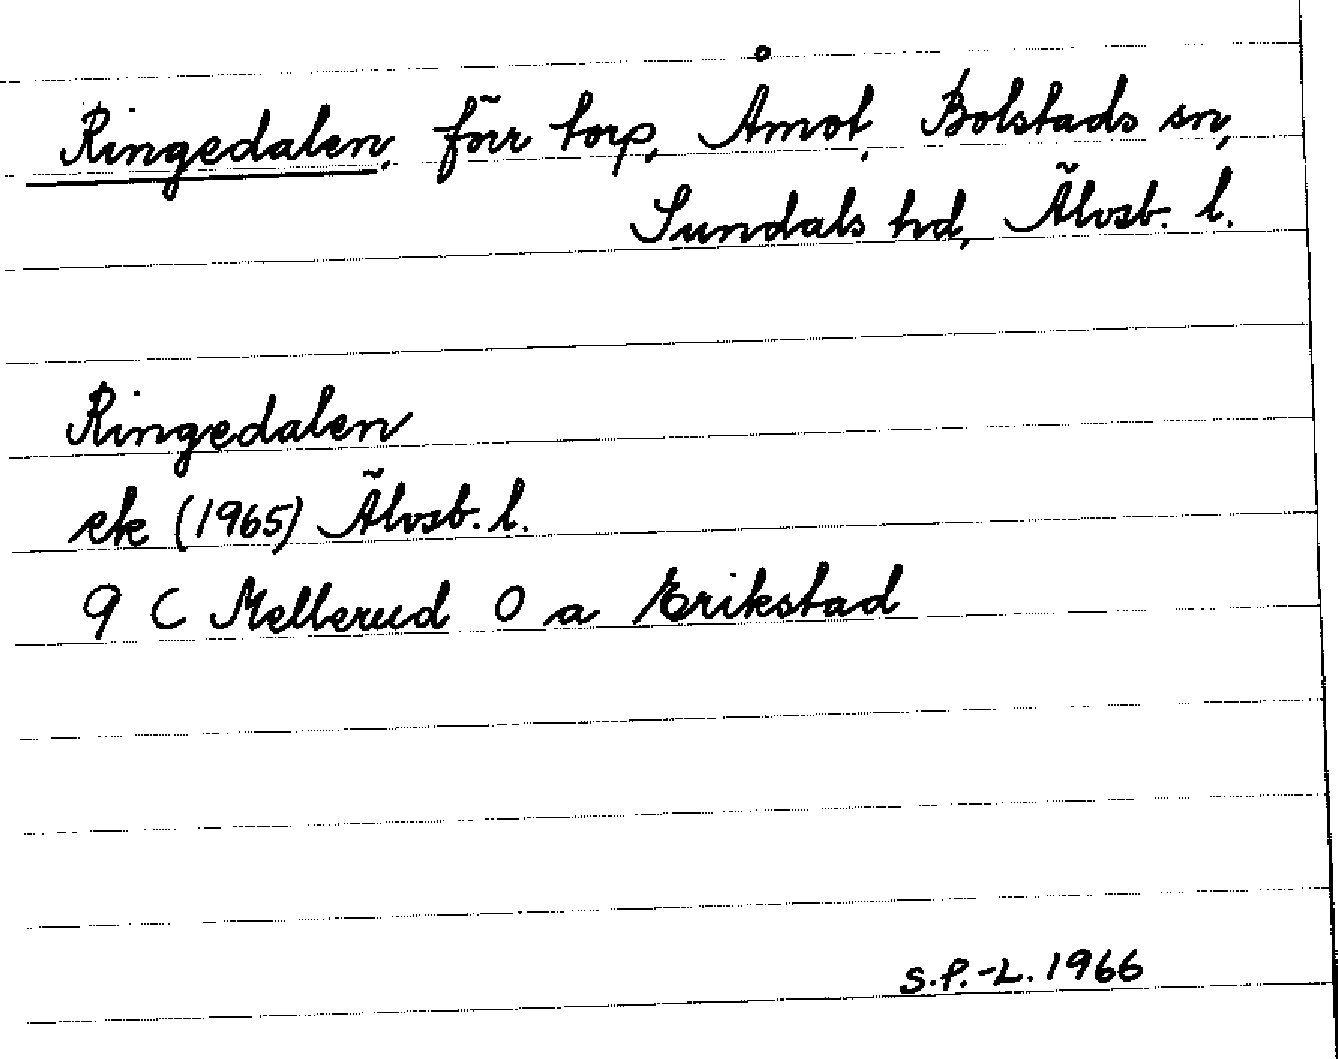 Ringedalen, förr torp, Åmot, Bolstads sn,
Sundals hd, Älvsb. l.
Ringedalen
ek (1965) Älvsb. l.
9 C Mellerud O a Erikstad
S.P.-L. 1966